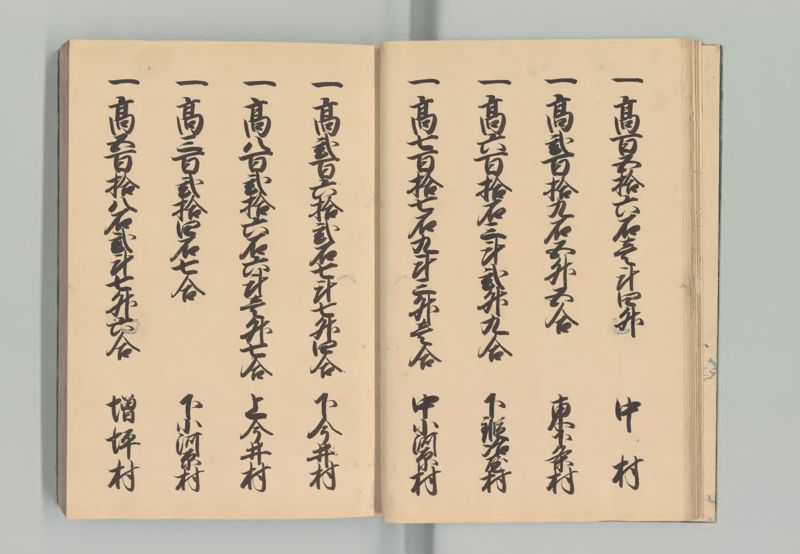 一 高百五拾六石壱斗四升 中村
一 高弐百拾九石五升五合 東下条村
一 高六百拾石三斗弐升九合 下鍛冶屋村
一 高七百拾七石九斗三升壱合 中小河原村
一 高弐百六拾弐石七斗七升四合 下今井村
一 高八百弐拾六石六斗壱升七合 上今井村
一 高三百弐拾四石七合 下小河原村
一 高五百拾八石弐斗七升六合 増坪村